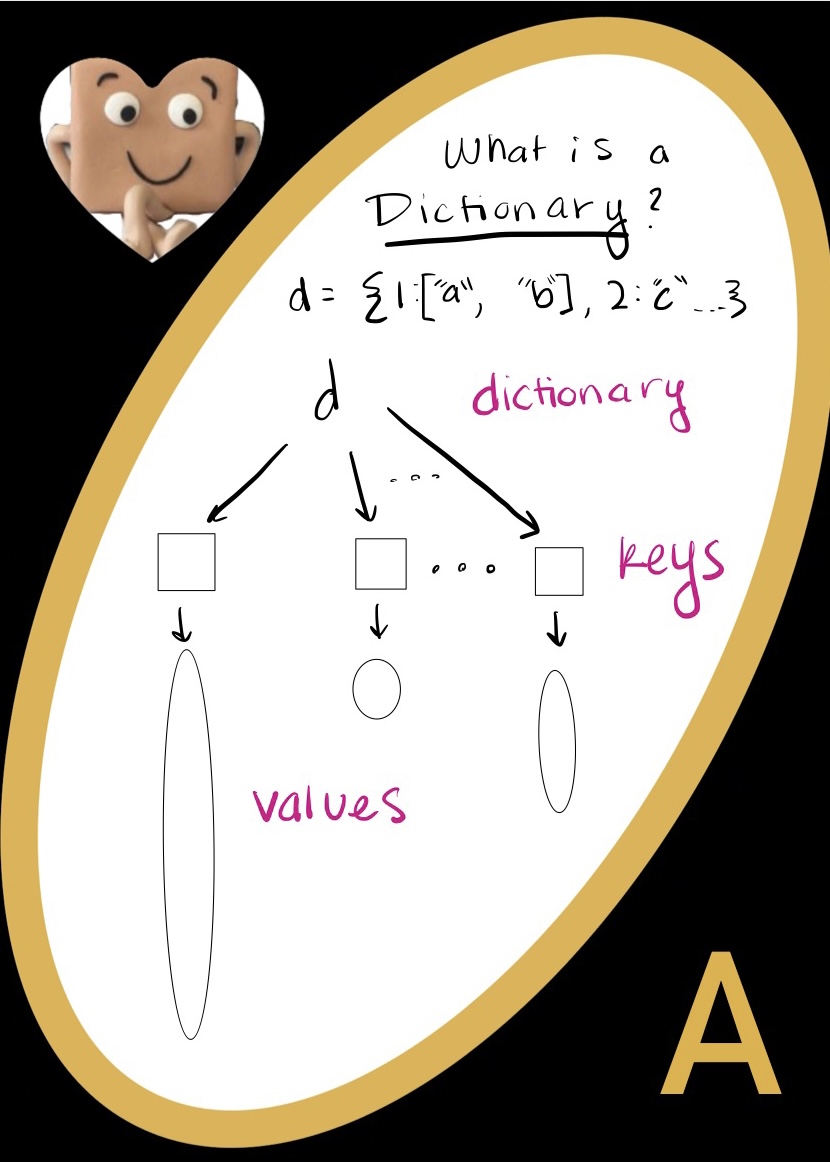 What is a
Dictionary?
d = {1:["a", "b"], 2:"c"...}
d
dictionary
...
... keys
values
A